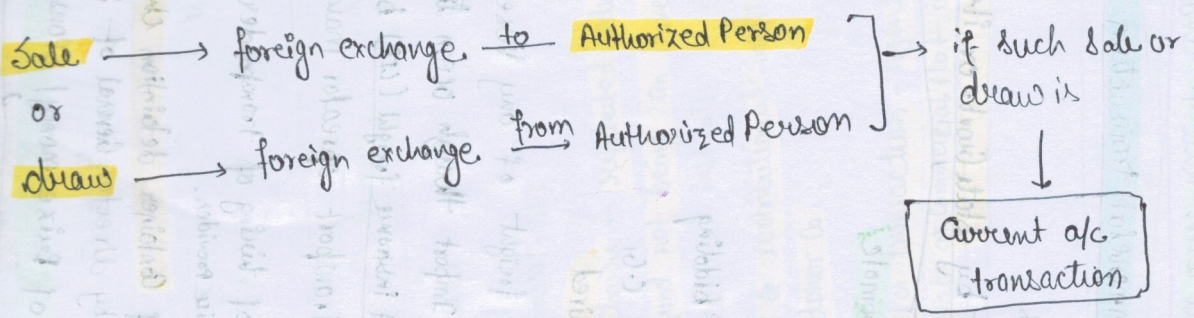 Sale → foreign exchange to Authorized Person
or
draw → foreign exchange from → Authorized Person
→ if such sale or
draw is
↓
Current a/c
transaction